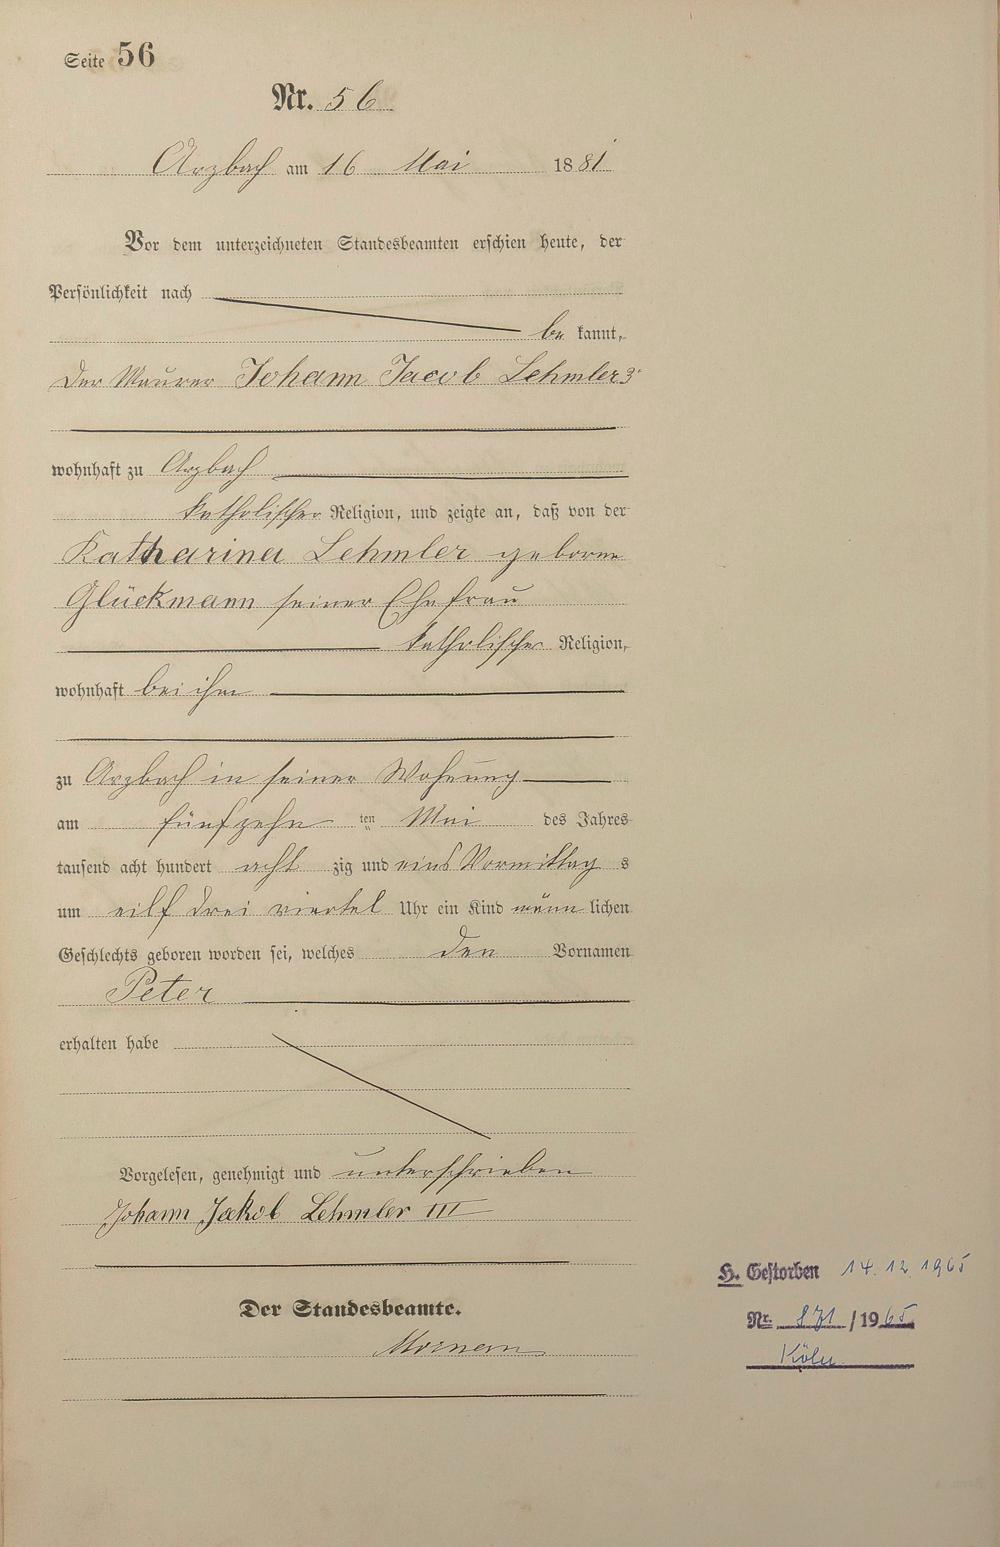 Seite 56
Nr. 56
Arzbach am 16 Mai 1881
Vor dem unterzeichneten Standesbeamten erschien heute, der
Persönlichkeit nach
be kannt,
der Maurer Johann Jacob Lehmler 3r
wohnhaft zu Arzbach
katholischer Religion, und zeigte an, daß von der
Katharina Lehmler geborne
Glückmann seiner Ehefrau
katholischer Religion,
wohnhaft bei ihm
zu Arzbach in seiner Wohnung
am fünfzehn ten Mai des Jahres
tausend acht hundert acht zig und eins Vormittag s
um eilf drei viertel Uhr ein Kind männ lichen
Geschlechts geboren worden sei, welches den Vornamen
Peter
erhalten habe
Vorgelesen, genehmigt und unterschrieben
Johann Jakob Lehmler III
Der Standesbeamte.
H. Gestorben 14.12.1965
Nr. 871/1965
Köln